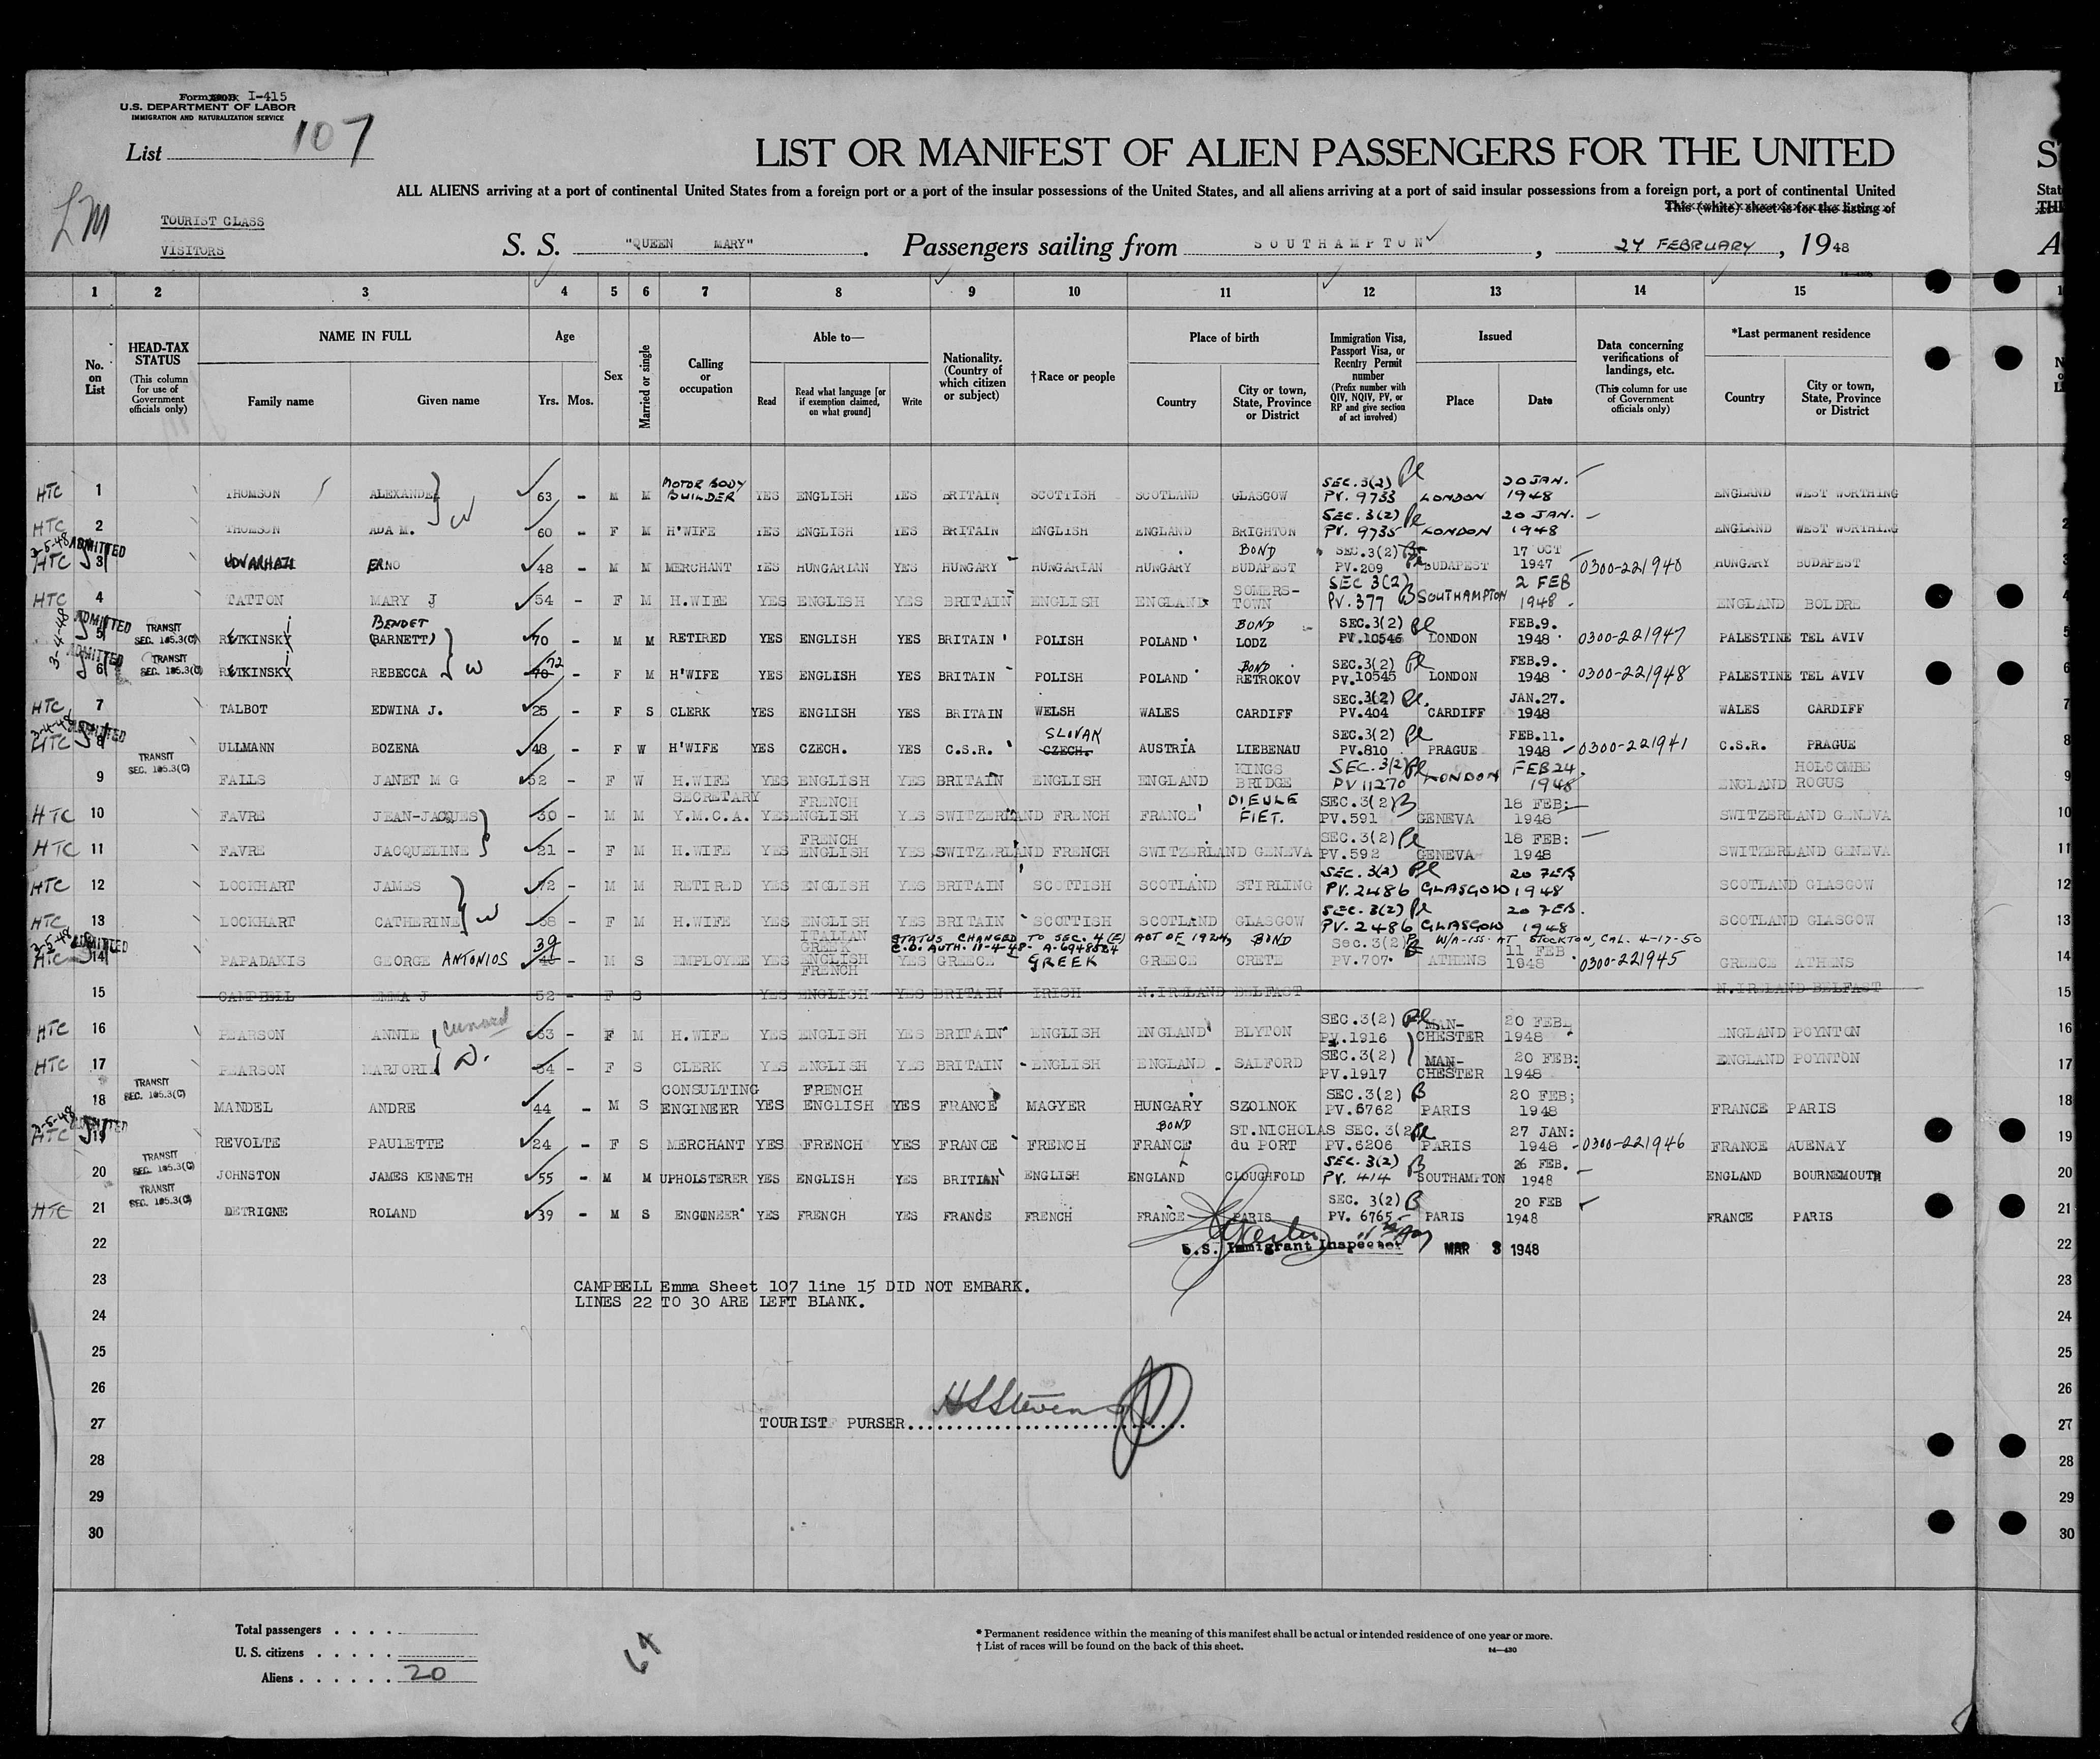 Form I-415
U.S. DEPARTMENT OF LABOR
IMMIGRATION AND NATURALIZATION SERVICE
List 107
LIST OR MANIFEST OF ALIEN PASSENGERS FOR THE UNITED S
ALL ALIENS arriving at a port of continental United States from a foreign port or a port of the insular possessions of the United States, and all aliens arriving at a port of said insular possessions from a foreign port, a port of continental United Stat
This (white) sheet is for the listing of
LM
TOURIST CLASS
VISITORS
S. S. "QUEEN MARY". Passengers sailing from SOUTHAMPTON, 27 FEBRUARY, 1948
1 2 3 4 5 6 7 8 9 10 11 12 13 14 15
No. on List
HEAD-TAX STATUS (This column for use of Government officials only)
NAME IN FULL Family name Given name
Age Yrs. Mos.
Sex
Married or single
Calling or occupation
Able to— Read Read what language [or if exemption claimed, on what ground] Write
Nationality. (Country of which citizen or subject)
†Race or people
Place of birth Country City or town, State, Province or District
Immigration Visa, Passport Visa, or Reentry Permit number (Prefix number with QIV, NQIV, PV, or RP and give section of act involved)
Issued Place Date
Data concerning verifications of landings, etc. (This column for use of Government officials only)
*Last permanent residence Country City or town, State, Province or District
HTC 1 THOMSON ALEXANDER 63 - M M MOTOR BODY BUILDER YES ENGLISH YES BRITAIN SCOTTISH SCOTLAND GLASGOW SEC.3(2) PV. 9733 LONDON 20 JAN. 1948 ENGLAND WEST WORTHING
HTC 2 THOMSON ADA M. 60 - F M H'WIFE YES ENGLISH YES BRITAIN ENGLISH ENGLAND BRIGHTON SEC.3(2) PV. 9735 LONDON 20 JAN. 1948 ENGLAND WEST WORTHING
3-5-48 ADMITTED HTC 3 UDVARHAZI ERNO 48 - M M MERCHANT YES HUNGARIAN YES HUNGARY HUNGARIAN HUNGARY BOND BUDAPEST SEC.3(2) PV.209 BUDAPEST 17 OCT 1947 0300-221940 HUNGARY BUDAPEST
HTC 4 TATTON MARY J 54 - F M H.WIFE YES ENGLISH YES BRITAIN ENGLISH ENGLAND SOMERS-TOWN SEC 3(2) PV. 377 SOUTHAMPTON 2 FEB 1948 ENGLAND BOLDRE
3-4-48 ADMITTED 5 TRANSIT SEC. 105.3(C) RETKINSKY BENDET (BARNETT) 70 - M M RETIRED YES ENGLISH YES BRITAIN POLISH POLAND BOND LODZ SEC.3(2) PV.10546 LONDON FEB.9. 1948 0300-221947 PALESTINE TEL AVIV
ADMITTED 6 TRANSIT SEC. 105.3(C) RETKINSKY REBECCA 70 72 - F M H'WIFE YES ENGLISH YES BRITAIN POLISH POLAND BOND RETROKOV SEC.3(2) PV.10545 LONDON FEB.9. 1948 0300-221948 PALESTINE TEL AVIV
HTC 7 TALBOT EDWINA J. 25 - F S CLERK YES ENGLISH YES BRITAIN WELSH WALES CARDIFF SEC.3(2) PV.404 CARDIFF JAN.27. 1948 WALES CARDIFF
3-4-48 ADMITTED HTC 8 TRANSIT SEC. 105.3(C) ULLMANN BOZENA 48 - F W H'WIFE YES CZECH. YES C.S.R. SLOVAK CZECH. AUSTRIA LIEBENAU SEC.3(2) PV.810 PRAGUE FEB.11. 1948 0300-221941 C.S.R. PRAGUE
9 FALLS JANET M G 52 - F W H.WIFE YES ENGLISH YES BRITAIN ENGLISH ENGLAND KINGS BRIDGE SEC.3(2) PV 11270 LONDON FEB 24. 1948 ENGLAND HOLCOMBE ROGUS
HTC 10 FAVRE JEAN-JACQUES 30 - M M SECRETARY Y.M.C.A. YES FRENCH ENGLISH YES SWITZERLAND FRENCH FRANCE DIEULE FIET. SEC.3(2) PV.591 GENEVA 18 FEB: 1948 SWITZERLAND GENEVA
HTC 11 FAVRE JACQUELINE 21 - F M H.WIFE YES FRENCH ENGLISH YES SWITZERLAND FRENCH SWITZERLAND GENEVA SEC.3(2) PV.592 GENEVA 18 FEB: 1948 SWITZERLAND GENEVA
HTC 12 LOCKHART JAMES 72 - M M RETIRED YES ENGLISH YES BRITAIN SCOTTISH SCOTLAND STIRLING SEC.3(2) PV.2486 GLASGOW 20 FEB 1948 SCOTLAND GLASGOW
HTC 13 LOCKHART CATHERINE 68 - F M H.WIFE YES ENGLISH YES BRITAIN SCOTTISH SCOTLAND GLASGOW SEC.3(2) PV.2486 GLASGOW 20 FEB. 1948 SCOTLAND GLASGOW
STATUS CHANGED TO SEC. 4(E) ACT OF 1924, BOND W/A-ISS. AT STOCKTON, CAL. 4-17-50
C.O. AUTH. 11-4-48- A-6948524
3-5-48 ADMITTED HTC 14 PAPADAKIS GEORGE ANTONIOS 39 M S EMPLOYEE YES ITALIAN GREEK ENGLISH FRENCH YES GREECE GREEK GREECE CRETE SEC.3(2) PV.707 ATHENS 11 FEB 1948 0300-221945 GREECE ATHENS
15 CAMPBELL EMMA J 52 - F S YES ENGLISH YES BRITAIN IRISH N.IRELAND BELFAST N.IRELAND BELFAST
HTC 16 PEARSON ANNIE Cunard 63 - F M H.WIFE YES ENGLISH YES BRITAIN ENGLISH ENGLAND BLYTON SEC.3(2) PV.1916 MAN-CHESTER 20 FEB. 1948 ENGLAND POYNTON
HTC 17 PEARSON MARJORIE D. 34 - F S CLERK YES ENGLISH YES BRITAIN ENGLISH ENGLAND SALFORD SEC.3(2) PV.1917 MAN-CHESTER 20 FEB: 1948 ENGLAND POYNTON
18 TRANSIT SEC. 105.3(C) MANDEL ANDRE 44 - M S CONSULTING ENGINEER YES FRENCH ENGLISH YES FRANCE MAGYER HUNGARY SZOLNOK SEC.3(2) PV.6762 PARIS 20 FEB; 1948 FRANCE PARIS
3-5-48 ADMITTED HTC 19 REVOLTE PAULETTE 24 - F S MERCHANT YES FRENCH YES FRANCE FRENCH FRANCE BOND ST.NICHOLAS du PORT SEC. 3(2) PV.6206 PARIS 27 JAN: 1948 0300-221946 FRANCE AUENAY
20 TRANSIT SEC. 105.3(C) JOHNSTON JAMES KENNETH 55 - M M UPHOLSTERER YES ENGLISH YES BRITIAN ENGLISH ENGLAND CLOUGHFOLD SEC. 3(2) PV. 414 SOUTHAMPTON 26 FEB. 1948 ENGLAND BOURNEMOUTH
HTC 21 TRANSIT SEC. 105.3(C) DETRIGNE ROLAND 39 - M S ENGINEER YES FRENCH YES FRANCE FRENCH FRANCE PARIS SEC. 3(2) PV. 6765 PARIS 20 FEB 1948 FRANCE PARIS
22 U.S. Immigrant Inspector MAR 3 1948
23 CAMPBELL Emma Sheet 107 line 15 DID NOT EMBARK.
LINES 22 TO 30 ARE LEFT BLANK.
24
25
26
27 TOURIST PURSER HSStevens
28
29
30
Total passengers
U. S. citizens
Aliens 20
64
* Permanent residence within the meaning of this manifest shall be actual or intended residence of one year or more.
† List of races will be found on the back of this sheet.
14—430